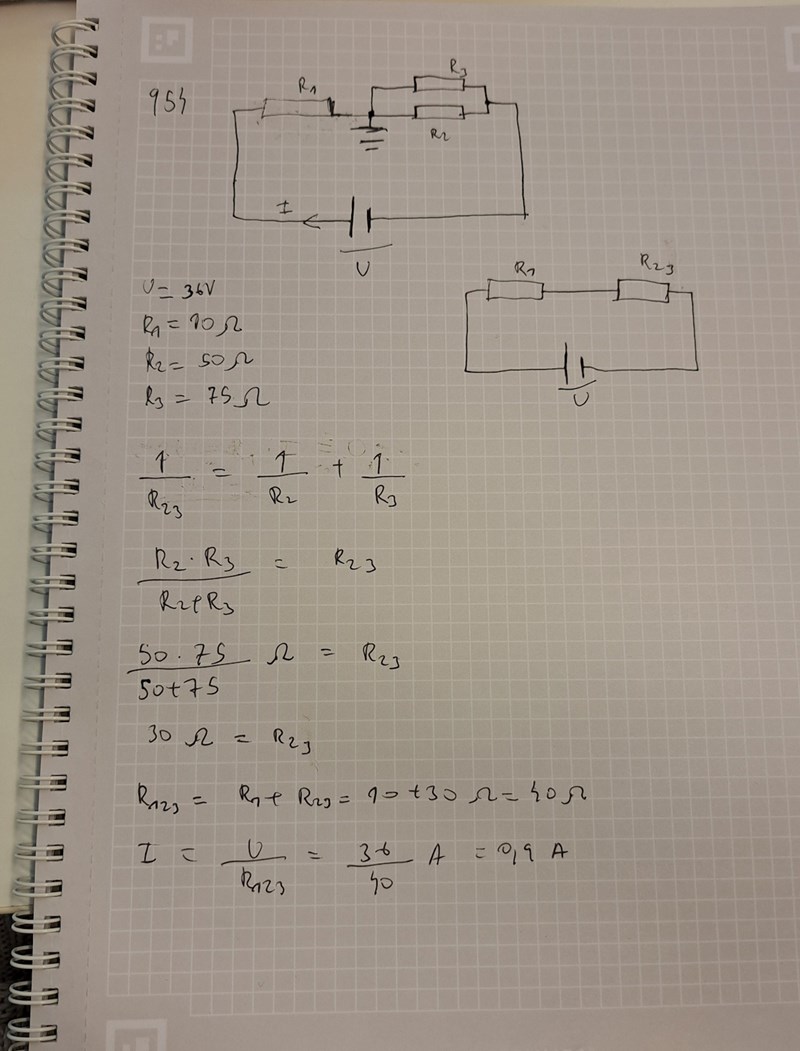 954
R₁
R₃
R₂
I
U
R₁
R₂₃
U
U = 36V
R₁ = 10 Ω
R₂ = 50 Ω
R₃ = 75 Ω
1/R₂₃ = 1/R₂ + 1/R₃
R₂ · R₃ / R₂+R₃ = R₂₃
50 · 75 / 50+75 Ω = R₂₃
30 Ω = R₂₃
R₁₂₃ = R₁ + R₂₃ = 10 + 30 Ω = 40 Ω
I = U/R₁₂₃ = 36/40 A = 0,9 A